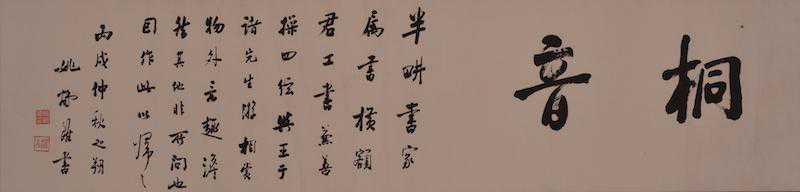 桐音
半畊書家
属書橫額
君工書兼善
操四弦與王于
諧先生游相賞
物外趣澹
然其他非所問也
因作此以歸之
丙戌仲秋之朔
姚書